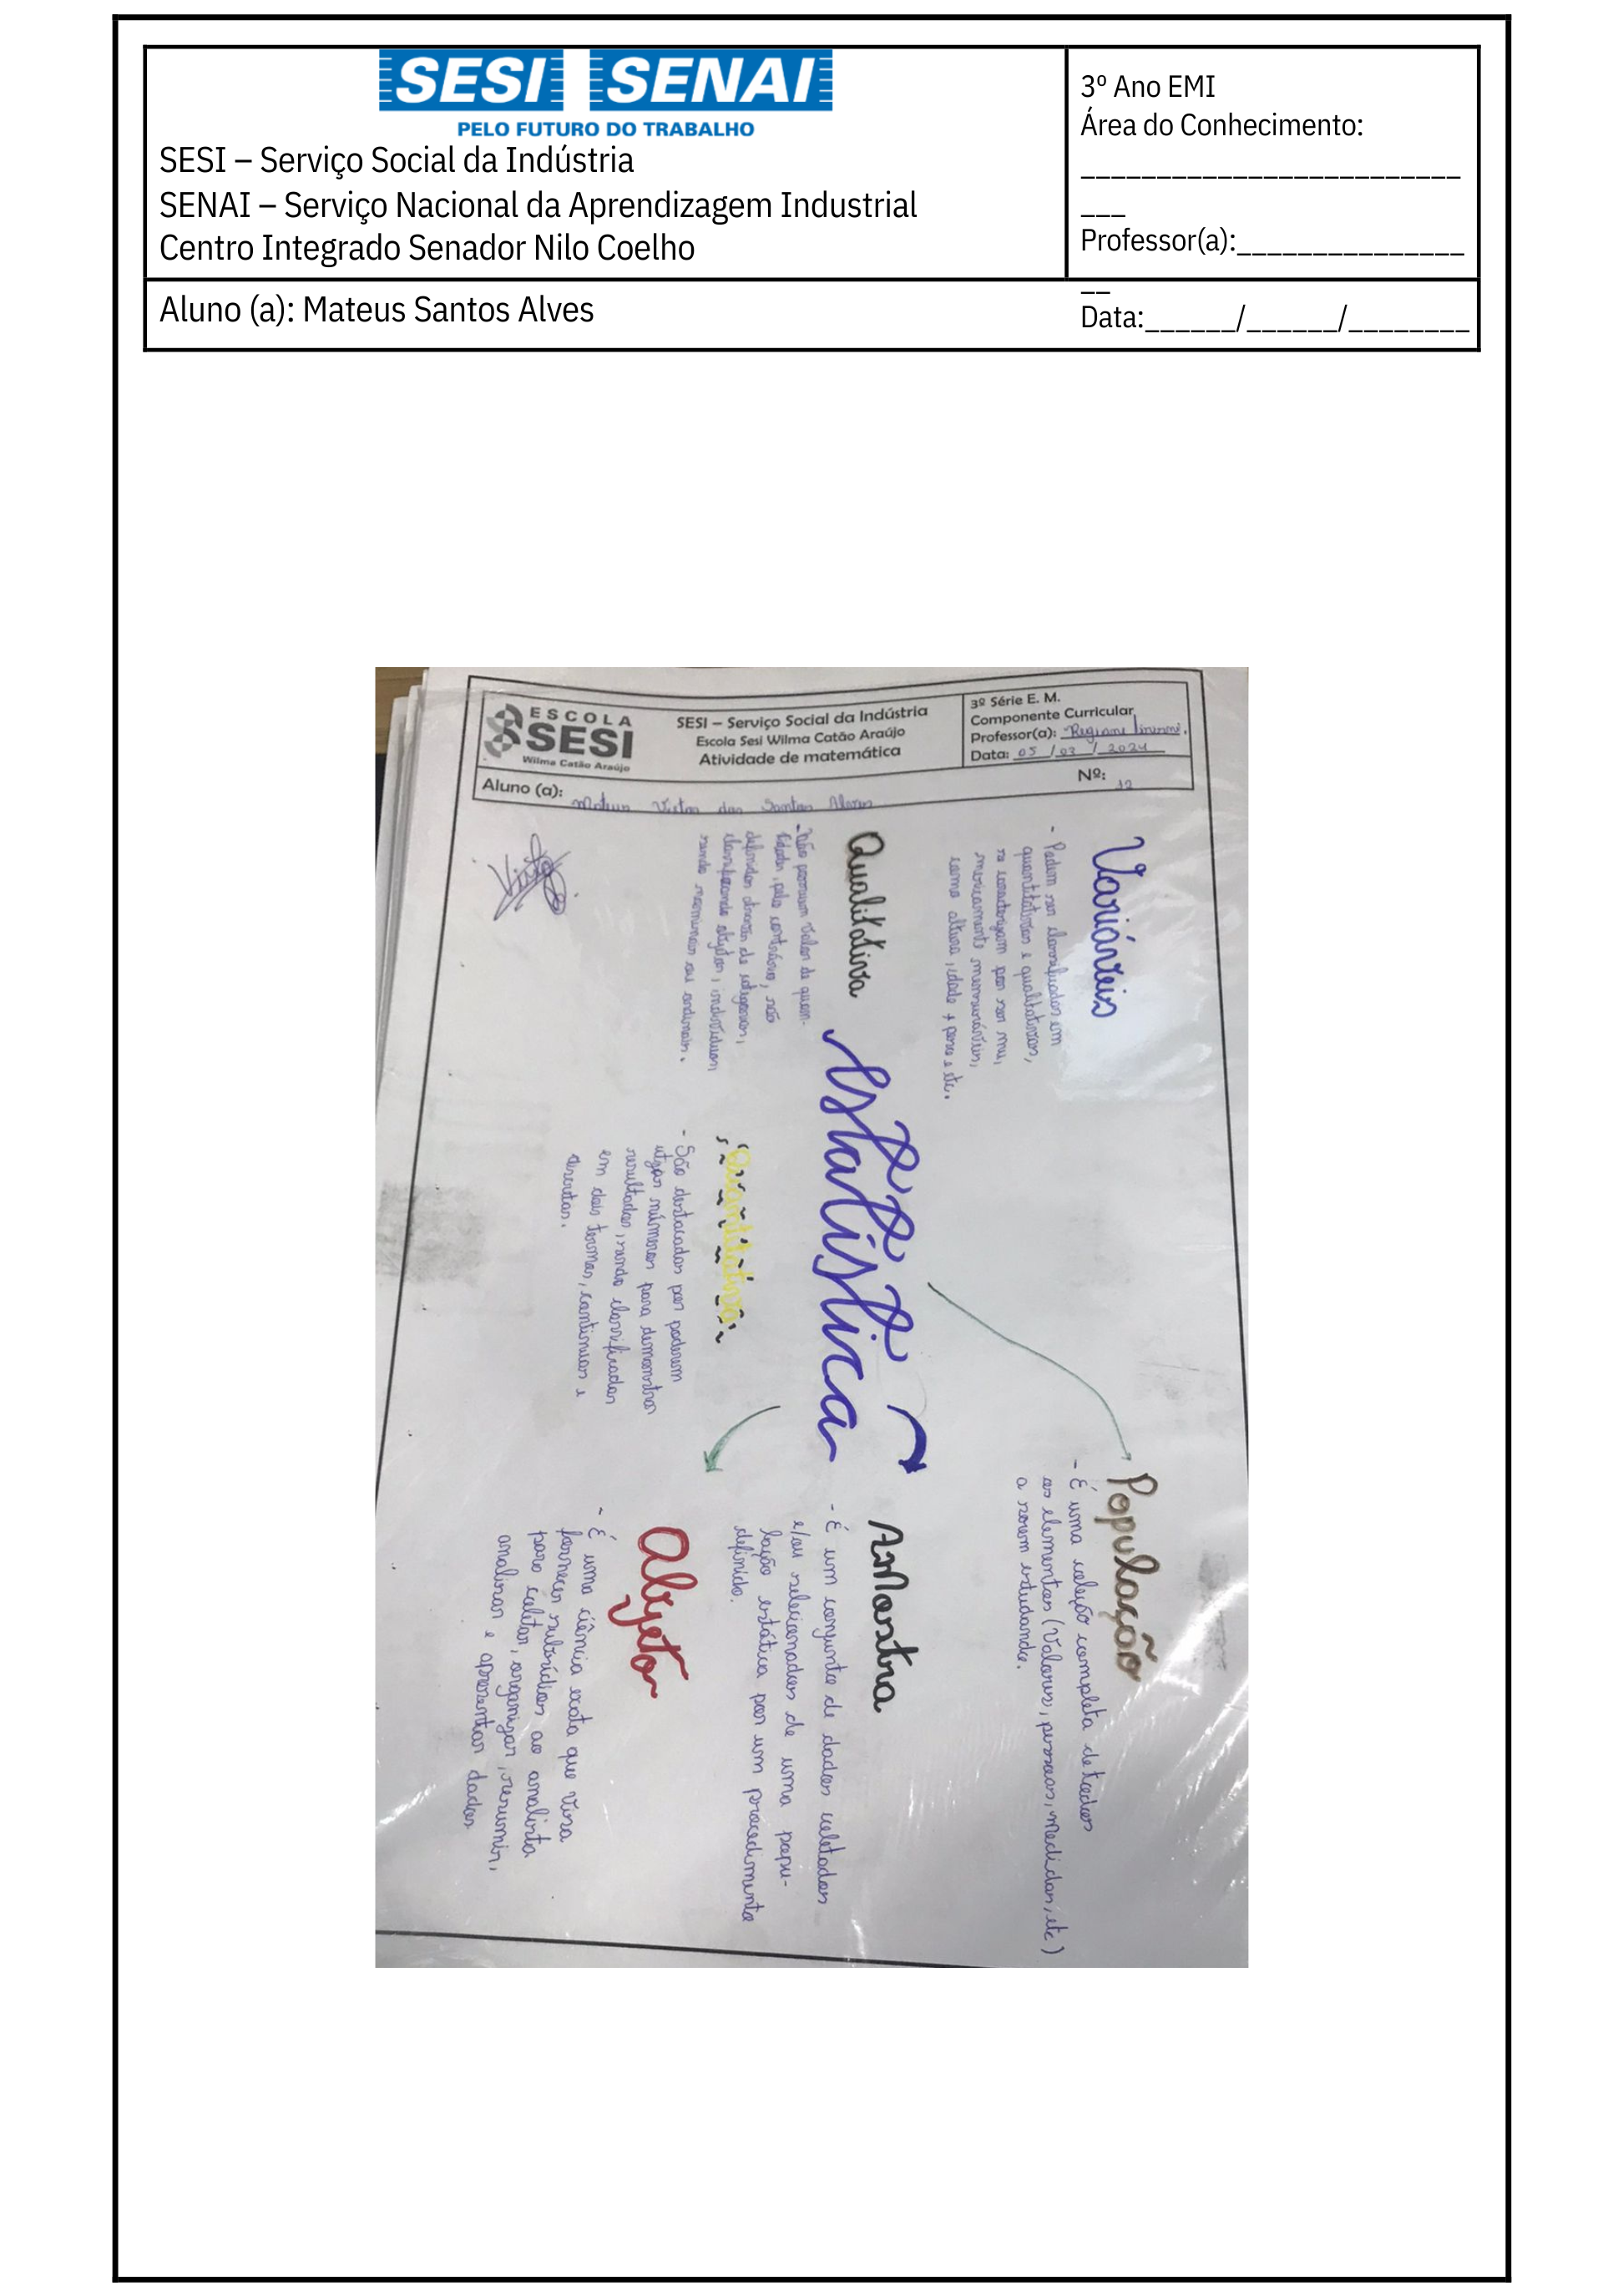 SESI SENAI
PELO FUTURO DO TRABALHO
SESI – Serviço Social da Indústria
SENAI – Serviço Nacional da Aprendizagem Industrial
Centro Integrado Senador Nilo Coelho
3º Ano EMI
Área do Conhecimento:
_________________________
___
Professor(a):_______________
__
Data:______/______/________
Aluno (a): Mateus Santos Alves
ESCOLA
SESI
Wilma Catão Araújo
SESI – Serviço Social da Indústria
Escola Sesi Wilma Catão Araújo
Atividade de matemática
3º Série E. M.
Componente Curricular
Professor(a): Regiane
Data: 05/03/2024
Nº: 12
Aluno (a): Mateus Victor dos Santos Alves
Variáveis
- Podem ser classificados em
quantitativas e qualitativas,
se caracterizam por ser nu,
mericamente numeráveis,
como altura, idade, peso e etc.
Qualitativa
- Não possuem valor de quan-
tidades, pelo contrário, são
definidos através de categorias,
classificando objetos, indivíduos
sendo nominais ou ordinais.
Estatística
Quantitativa
- São destacados por poderem
utizar números para demonstrar
resultados, sendo classificadas
em dois termos, continuas e
discretas.
População
- É uma coleção completa de todos
os elementos (Valores, pessoas, medidas, etc)
a serem estudando.
AMostra
- É um conjunto de dados coletados
e/ou selecionados de uma popu-
lação estática por um procedimento
definido.
Objeto
- É uma ciência exata que visa
fornecer subsídios ao analista
para coletar, organizar, resumir,
analisar e apresentar dados.